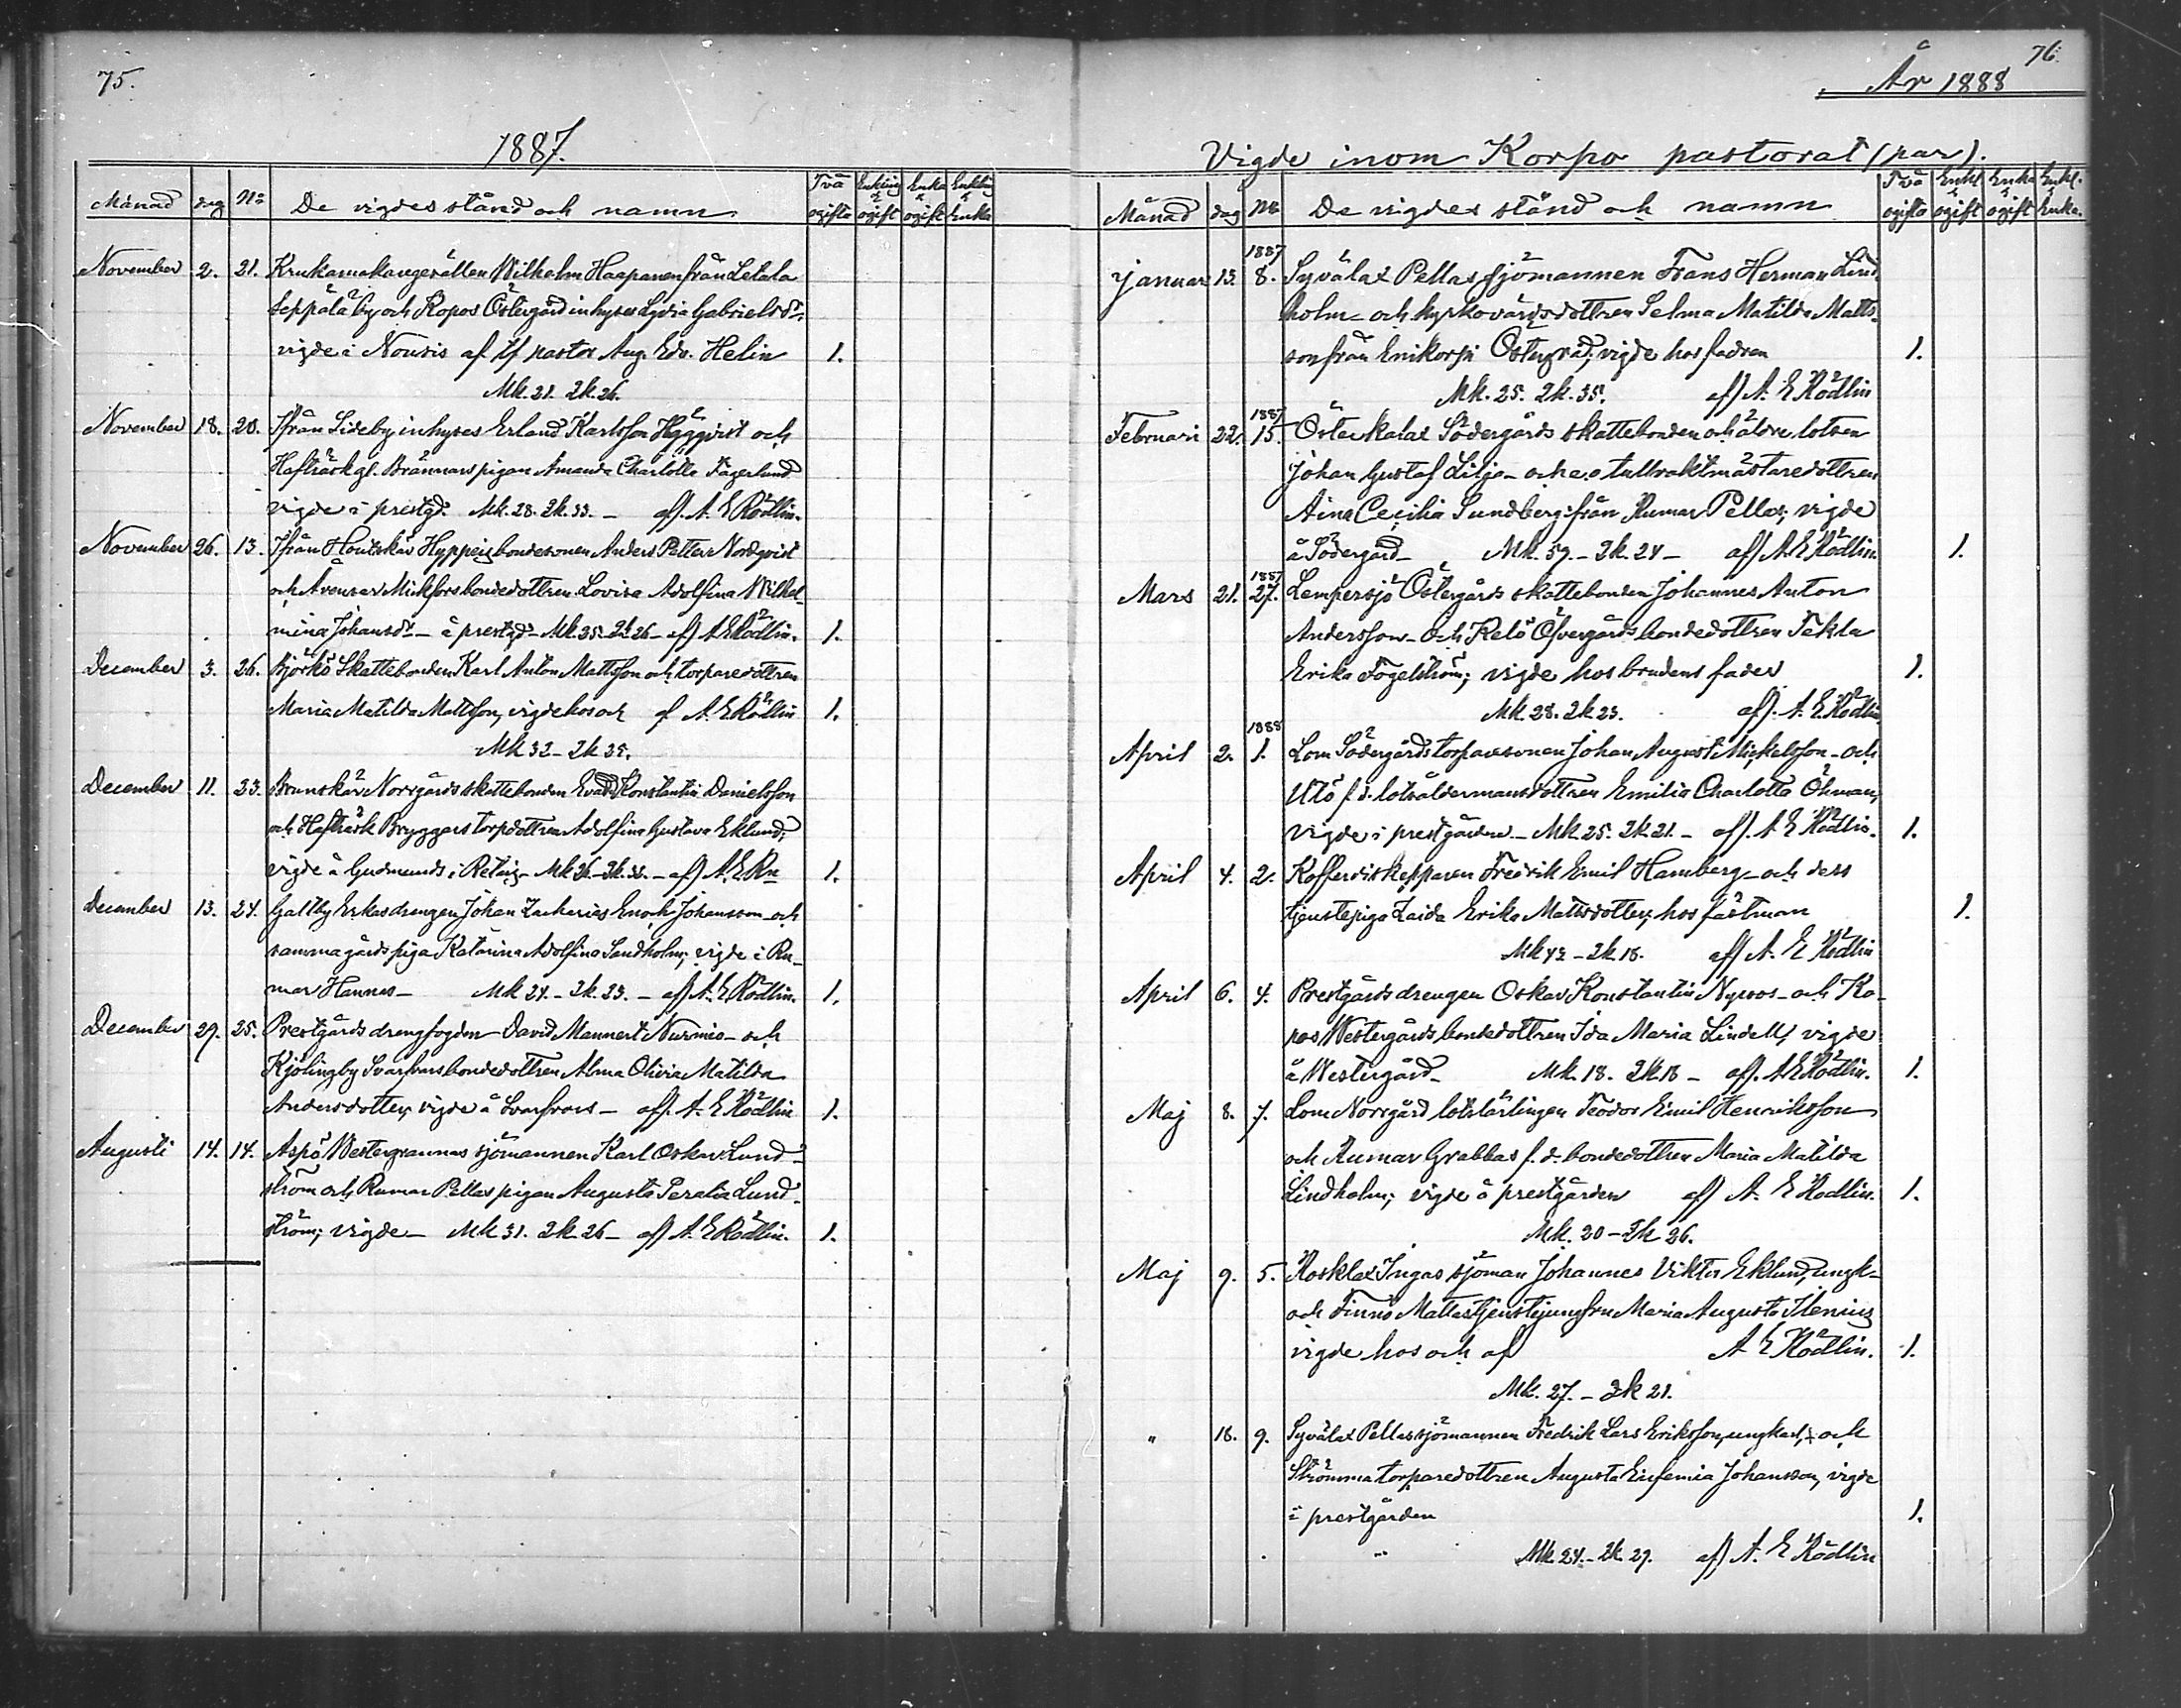 75.
1887.
Månad dag No De vigdes stånd och namn Två ogifta Enkling & ogift Enka & ogift Enkling & Enka
November 2. 21. Krukamakaregesällen Wilhelm Haapanen från Letala
Seppälä by och Kopos Östergård inhyses Lydia Gabrielsdr,
vigde i Nousis af tf pastor Aug. Edv. Helin 1.
Mk. 21. Qk. 26.
November 18. 20. Ifrån Lideby inhyses Erland Karlsson Häggqvist och
Hafträsk gl. Brännars pigan Amanda Charlotta Fagerlund
vigde i prestgd. Mk. 28. Qk. 33. – af. A. E Rödlin.
November 26. 13. Ifrån Houtskär Hyppeis bondesonen Anders Petter Nordqvist
och Åvensor Mickfors bondedottren Lovisa Adolfina Wilhel-
mina Johansdr – å prestgd – Mk. 35. Qk 26 – af A E Rödlin. 1.
December 3. 26. Björkö Skattebonden Karl Anton Mattsson och torparedottren
Maria Matilda Mattsson, vigde hos och af A. E Rödlin 1.
Mk 32 – Qk 35.
December 11. 23. Brunskär Norrgårds skattebonden Evald Konstantin Danielsson
och Hafträsk Bryggars torpdottren Adolfina Gustava Eklund;
vigde å Gudmunds i Retais – Mk 26. – Qk. 33. – af A. E Rn 1.
December 13. 24. Galtby Erkas drengen Johan Zacharias Enoch Johansson – och
samma gårds piga Katarina Adolfina Sandholm; vigde i Ru-
mar Hannas – Mk 24. – Qk. 23. – af A. E Rödlin. 1.
December 29. 25. Prestgårds drengfogden David Mannert Nurmio – och
Kjölingby Svarfvars bondedottren Alma Olivia Matilda
Andersdotter, vigde å Svarfvars – af. A. E Rödlin 1.
Augusti 14. 14. Aspö Westergrannas sjömannen Karl Oskar Lund-
ström och Rumar Pellas pigan Augusta Seralia Lund-
ström; vigde – Mk 31. Qk 26 – af A. E Rödlin. 1.
76.
År 1888
Vigde inom Korpo pastorat (par).
Månad dag No De vigdes stånd och namn Två ogifta Enkl. & ogift Enka & ogift Enkl. & Enka.
1887
Januari 13. 8. Syvälax Pellas sjömannen Frans Herman Lind-
holm – och kyrkovärdsdottren Selma Matilda Matts-
son från Enikorpi Östergård; vigde hos fadren 1.
Mk. 25. Qk. 35. af A. E Rödlin
1887
Februari 22. 15. Österkalax Södergårds skattebonden och äldre lotsen
Johan Gustaf Lilja – och e.o tullvaktmästaredottren
Aina Cecilia Sundberg ifrån Rumar Pellas; vigde
å Södergård – Mk. 59 – Qk. 24 – af A. E Rödlin. 1.
1887
Mars 21. 27. Lempersjö Östergårds skattebonden Johannes Anton
Andersson – och Kelö Öfvergårds bondedottren Tekla
Erika Fogelström; vigde hos brudens fader 1.
Mk. 28. Qk 23. af. A. E. Rödlin
1888
April 2. 1. Lom Södergårds torparesonen Johan August Mickelsson – och
Utö f.d. lotsåldermansdottren Emilia Charlotta Öhman,
vigde i prestgården – Mk. 25. Qk. 21. – af. A. E Rödlin. 1.
April 4. 2. Kofferdiskepparen Fredrik Emil Hamberg – och dess
tjenstepiga Zaida Erika Mattsdotter, hos fästman 1.
Mk 42 – Qk. 18. af A. E Rödlin
April 6. 4. Prestgårds drengen Oskar Konstantin Nyroos – och Ko-
pos Westergårds bondedottren Ida Maria Lindell, vigde
å Westergård – Mk. 18. Qk. 18 – af. A. E Rödlin. 1.
Maj 8. 7. Lom Norrgård lotslärlingen Teodor Emil Henriksson
och Rumar Grabbas f.d. bondedottren Maria Matilda
Lindholm; vigde å prestgården af A. E Rödlin. 1.
Mk. 20 – Qk 26.
Maj 9. 5. Rosklax Ingas sjöman Johannes Viktor Eklund, ungk –
och Finnö Mattas tjenstejungfru Maria Augusta Stenius
vigde hos och af A E Rödlin. 1.
Mk. 27. – Qk 21.
" 18. 9. Syvälax Pellas sjömannen Fredrik Lars Eriksson, ungkarl, – och
Strömma torparedottren Augusta Eufemia Johansson, vigde
i prestgården 1.
" Mk. 24. – Qk. 29. af A. E Rödlin